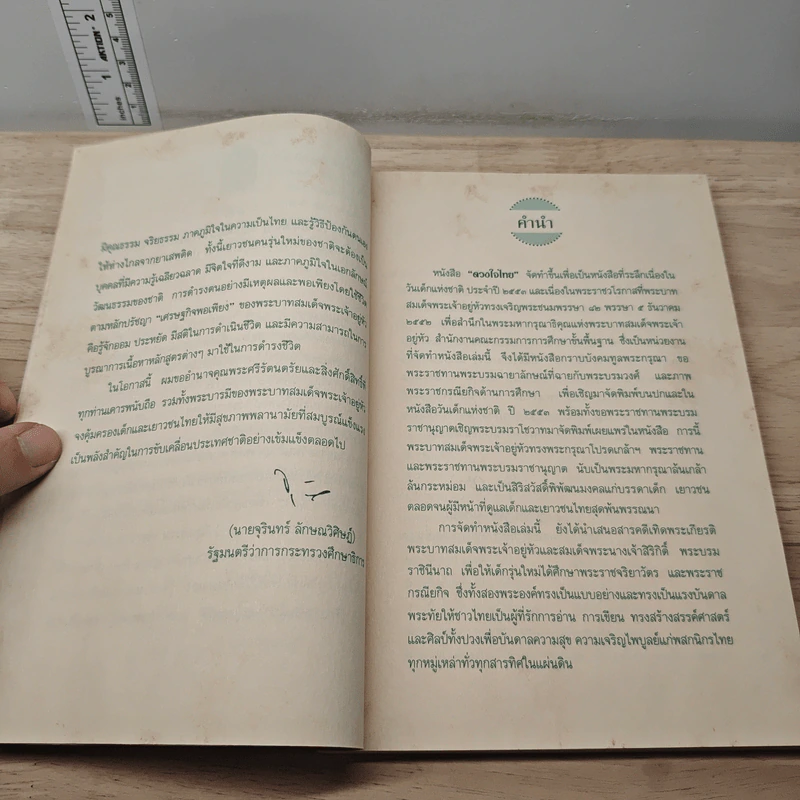 inches 1 AKTION 2
1 2 3 4 5
มีคุณธรรม จริยธรรม ภาคภูมิใจในความเป็นไทย และรู้วิธีป้องกันตนเอง
ให้ห่างไกลจากยาเสพติด ทั้งนี้เยาวชนคนรุ่นใหม่ของชาติจะต้องเป็น
บุคคลที่มีความรู้เฉลียวฉลาด มีจิตใจที่ดีงาม และภาคภูมิใจในเอกลักษณ์
วัฒนธรรมของชาติ การดำรงตนอย่างมีเหตุผลและพอเพียงโดยใช้ชีวิต
ตามหลักปรัชญา "เศรษฐกิจพอเพียง" ของพระบาทสมเด็จพระเจ้าอยู่หัว
คือรู้จักออม ประหยัด มีสติในการดำเนินชีวิต และมีความสามารถในการ
บูรณาการเนื้อหาหลักสูตรต่างๆ มาใช้ในการดำรงชีวิต
ในโอกาสนี้ ผมขออำนาจคุณพระศรีรัตนตรัยและสิ่งศักดิ์สิทธิ์ที่
ทุกท่านเคารพนับถือ รวมทั้งพระบารมีของพระบาทสมเด็จพระเจ้าอยู่หัว
จงคุ้มครองเด็กและเยาวชนไทยให้มีสุขภาพพลานามัยที่สมบูรณ์แข็งแรง
เป็นพลังสำคัญในการขับเคลื่อนประเทศชาติอย่างเข้มแข็งตลอดไป
(นายจุรินทร์ ลักษณวิศิษฏ์)
รัฐมนตรีว่าการกระทรวงศึกษาธิการ
คำนำ
หนังสือ "ดวงใจไทย" จัดทำขึ้นเพื่อเป็นหนังสือที่ระลึกเนื่องใน
วันเด็กแห่งชาติ ประจำปี ๒๕๕๓ และเนื่องในพระราชวโรกาสที่พระบาท
สมเด็จพระเจ้าอยู่หัวทรงเจริญพระชนมพรรษา ๘๒ พรรษา ๕ ธันวาคม
๒๕๕๒ เพื่อสำนึกในพระมหากรุณาธิคุณแห่งพระบาทสมเด็จพระเจ้า
อยู่หัว สำนักงานคณะกรรมการการศึกษาขั้นพื้นฐาน ซึ่งเป็นหน่วยงาน
ที่จัดทำหนังสือเล่มนี้ จึงได้มีหนังสือกราบบังคมทูลพระกรุณา ขอ
พระราชทานพระบรมฉายาลักษณ์ที่ฉายกับพระบรมวงศ์ และภาพ
พระราชกรณียกิจด้านการศึกษา เพื่อเชิญมาจัดพิมพ์บนปกและใน
หนังสือวันเด็กแห่งชาติ ปี ๒๕๕๓ พร้อมทั้งขอพระราชทานพระบรม
ราชานุญาตเชิญพระบรมราโชวาทมาจัดพิมพ์เผยแพร่ในหนังสือ การนี้
พระบาทสมเด็จพระเจ้าอยู่หัวทรงพระกรุณาโปรดเกล้าฯ พระราชทาน
และพระราชทานพระบรมราชานุญาต นับเป็นพระมหากรุณาล้นเกล้า
ล้นกระหม่อม และเป็นสิริสวัสดิ์พิพัฒนมงคลแก่บรรดาเด็ก เยาวชน
ตลอดจนผู้มีหน้าที่ดูแลเด็กและเยาวชนไทยสุดพ้นพรรณนา
การจัดทำหนังสือเล่มนี้ ยังได้นำเสนอสารคดีเทิดพระเกียรติ
พระบาทสมเด็จพระเจ้าอยู่หัวและสมเด็จพระนางเจ้าสิริกิติ์ พระบรม
ราชินีนาถ เพื่อให้เด็กรุ่นใหม่ได้ศึกษาพระราชจริยาวัตร และพระราช
กรณียกิจ ซึ่งทั้งสองพระองค์ทรงเป็นแบบอย่างและทรงเป็นแรงบันดาล
พระทัยให้ชาวไทยเป็นผู้ที่รักการอ่าน การเขียน ทรงสร้างสรรค์ศาสตร์
และศิลป์ทั้งปวงเพื่อบันดาลความสุข ความเจริญไพบูลย์แก่พสกนิกรไทย
ทุกหมู่เหล่าทั่วทุกสารทิศในแผ่นดิน